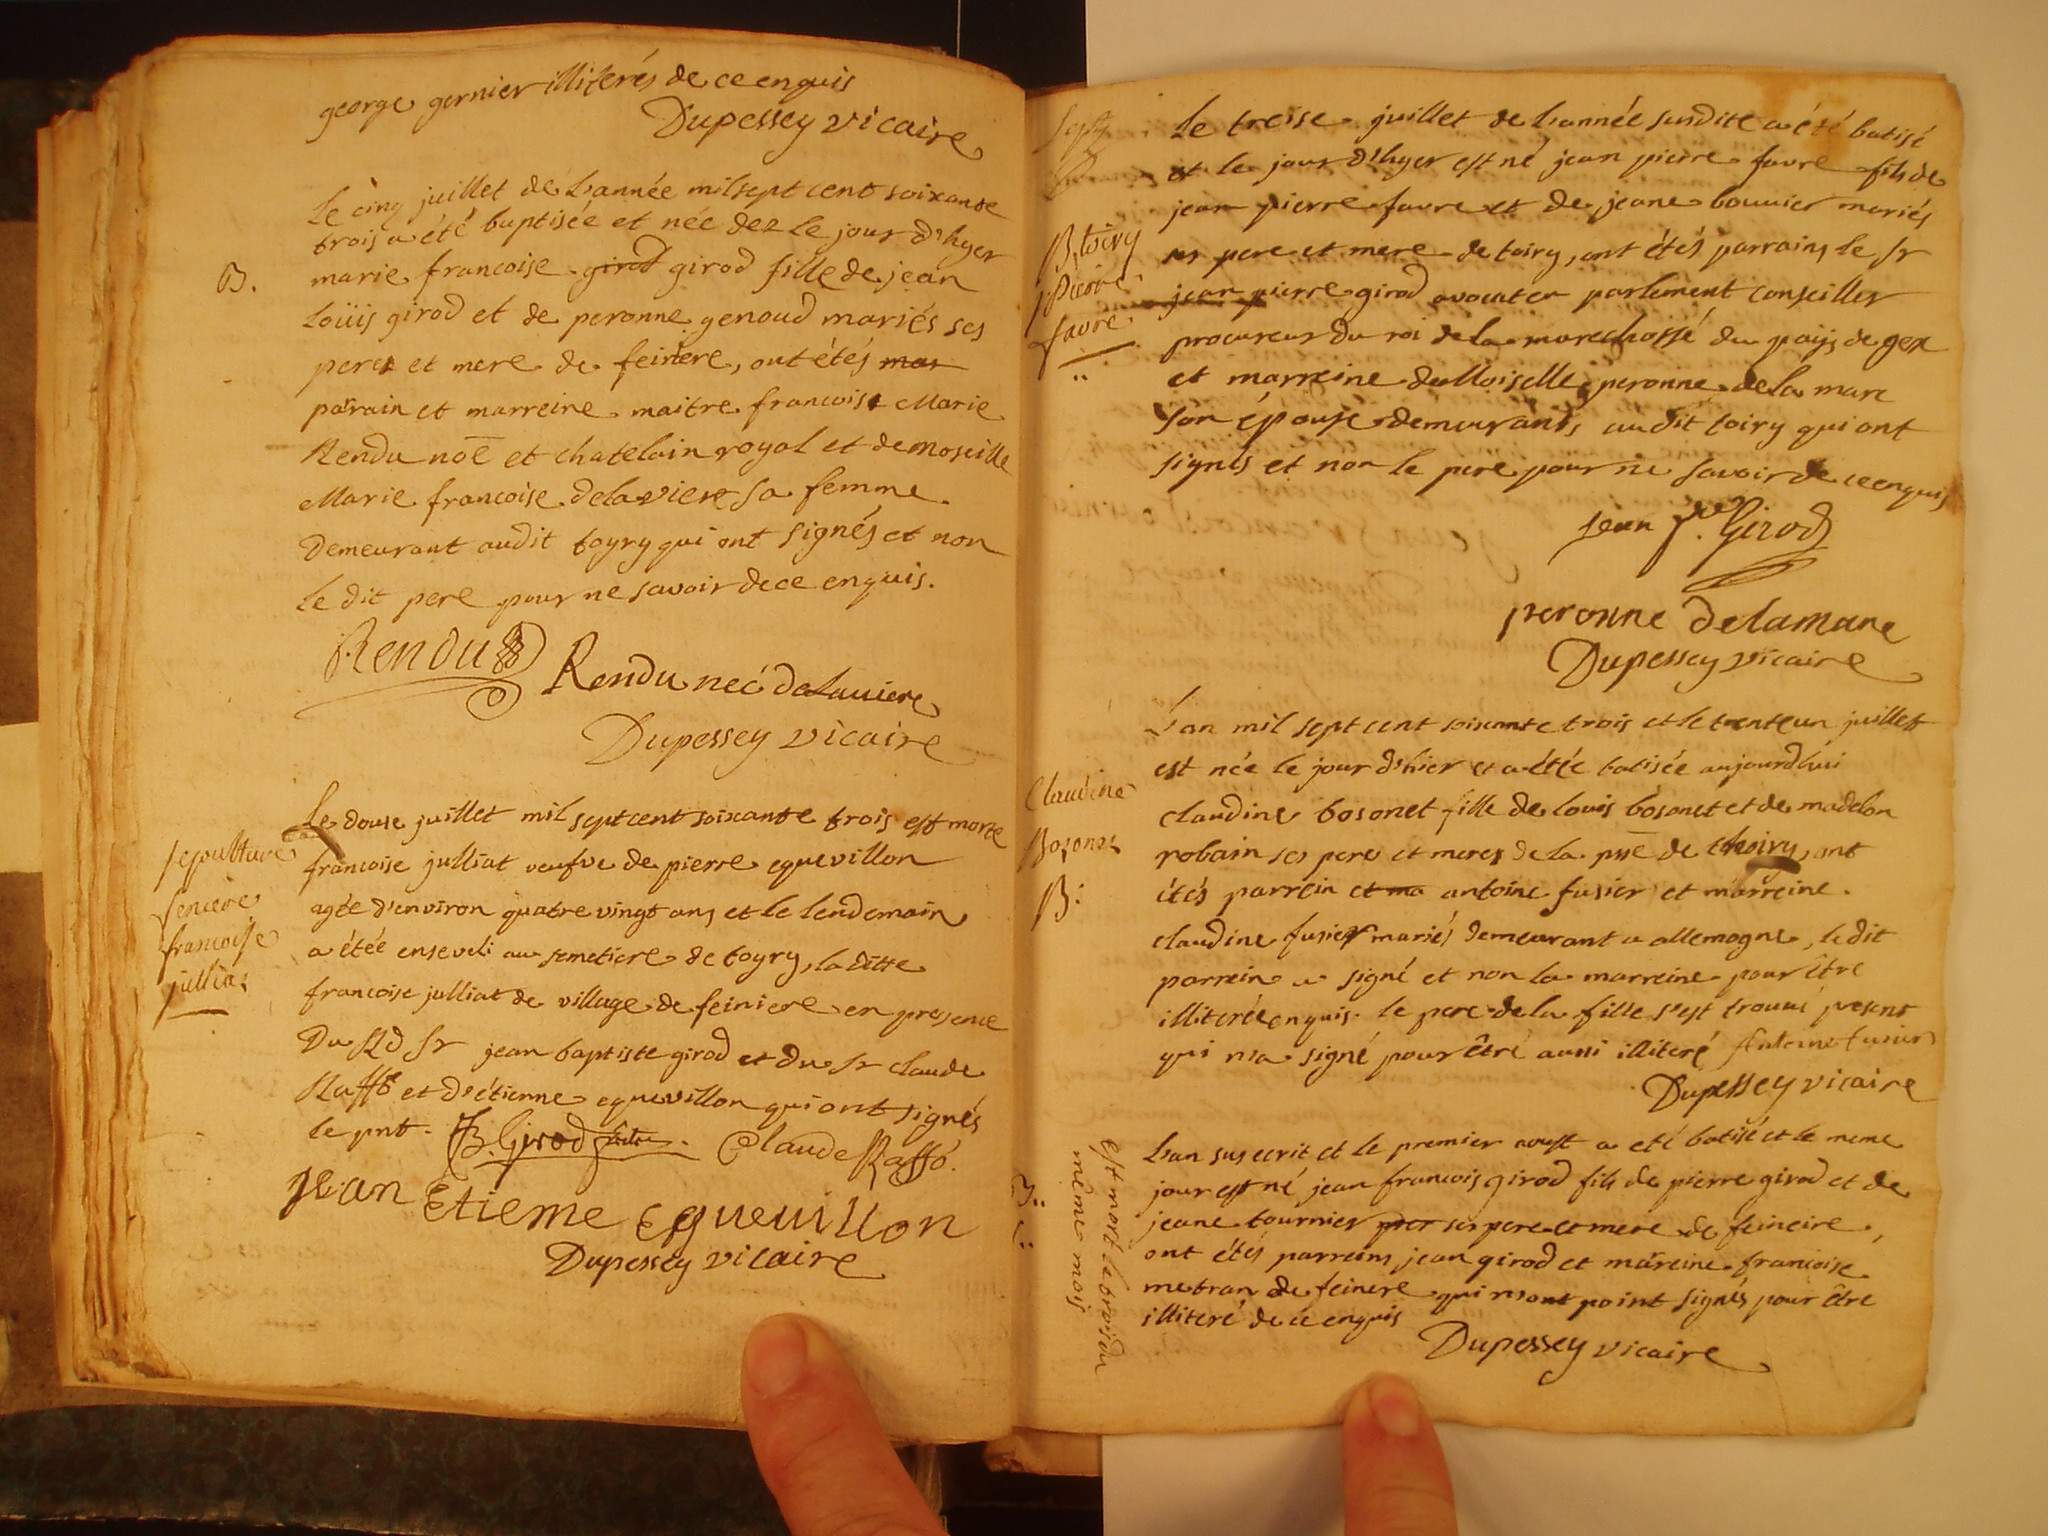 george gernier illiterés de ce enquis
Dupessey vicaire
B.
Le cinq juillet de L'année mil sept cent soixante
trois a été baptisée et née dez le jour d'hyer
marie francoise girod girod fille de jean
Loüis girod et de peronne genoud mariés ses
peres et mere de feinere, ont étés mar
parain et marreine maitre francois Marie
Rendu noe et chatelain royal et demoseille
Marie francoise delaviere sa femme
demeurant audit toyry qui ont signés et non
le dit pere pour ne savoir de ce enquis.
Rendu
Rendu neé deLauiere
Dupessey vicaire
sepulture
feniere
francoise
julliat
Le douse juillet mil sept cent soixante trois est morte
francoise julliat veufve de pierre equevillon
agée d'environ quatre vingt ans et le lendemain
a étée enseveli au semetiere de toyry, la ditte
francoise julliat de village de feiniere en presence
Du Rd Sr jean baptiste girod et du Sr claude
Raffo et d'étienne equevillon qui ont signés
le pnt. JB. Girod Claude Raffo.
Jean Etieme Equeuillon
Dupessey vicaire
B, toiry
j Pierre
favre
Le treise juillet de L'année susdite a été batisé
et le jour d'hyer est né jean pierre favre fils de
jean pierre favre et de jeane bouvier mariés
ses pere et mere de toiry, ont étés parrains le Sr
jean pierre girod avocat en parlement conseiller
procureur du roi de la marechossé du payis de gex
et marreine demoiselle peronne de la mare
son épouse demeurants audit toiry qui ont
signés et non le pere pour ne savoir de ce enquis
jean Pre Girod
peronne Delamare
Dupessey vicaire
Claudine
Bosonet
B:
L'an mil sept cent soixante trois et le trenteun juillet
est née le jour d'hier et a étée batisée aujourdhui
claudine bosonet fille de louis bosonet et de madelon
robain ses pere et meres de la psse de thoiry, ont
étés parrein et ma antoine fusier et marreine
claudine fusier mariés demeurant a allemogne, le dit
parrein a signé et non la marreine pour être
illiterée enquis. le pere de la fille s'est trouvé present
qui n'a signé pour être aussi illiteré Antoine fusier
Dupessey vicaire
B..
est mort le trois du
même mois
L'an sus ecrit et le premier aoust a eté batisé et le meme
jour est né jean francois girod fils de pierre girod et de
jeane tournier ses pere et mere de feineire,
ont étés parreins jean girod et mareine francoise
metran de feinere qui n'ont point signés pour être
illiteré de ce enquis
Dupessey vicaire